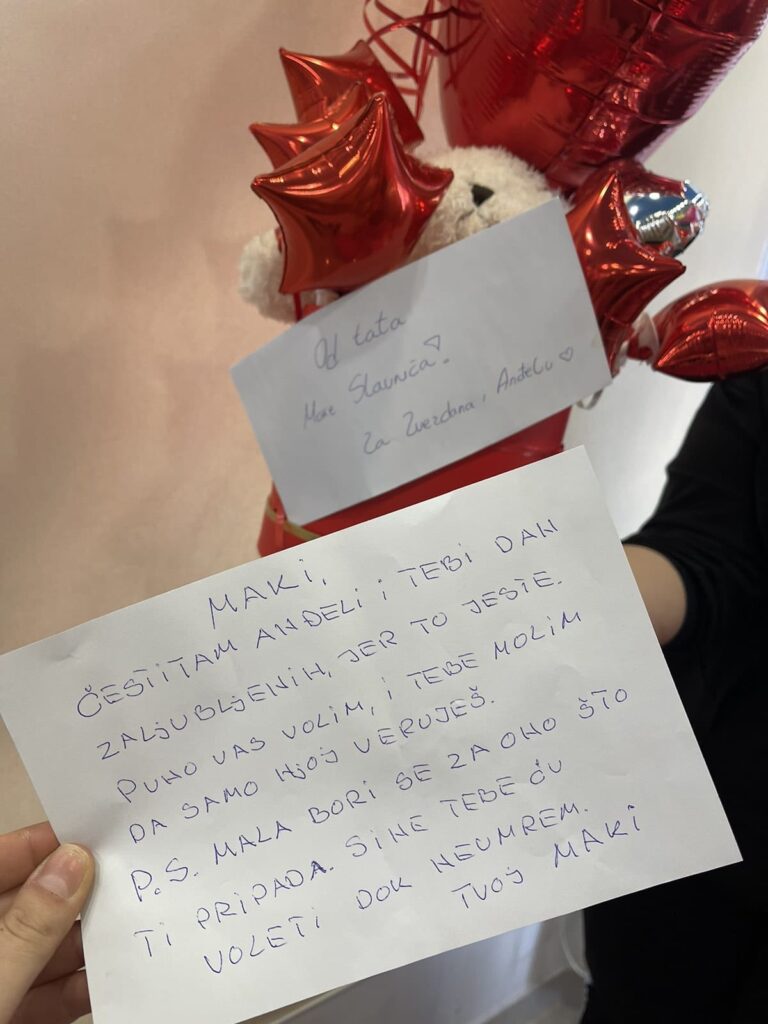 Od tata
Mare Slavnića!
Za Zvezdana i Anđelu
MAKI,
ČESTITAM ANĐELI I TEBI DAN
ZALJUBLJENIH, JER TO JESTE.
PUNO VAS VOLIM, I TEBE MOLIM
DA SAMO NJOJ VERUJEŠ.
P.S. MALA BORI SE ZA ONO ŠTO
TI PRIPADA. SINE TEBE ĆU
VOLETI DOK NEUMREM.
TVOJ MAKI